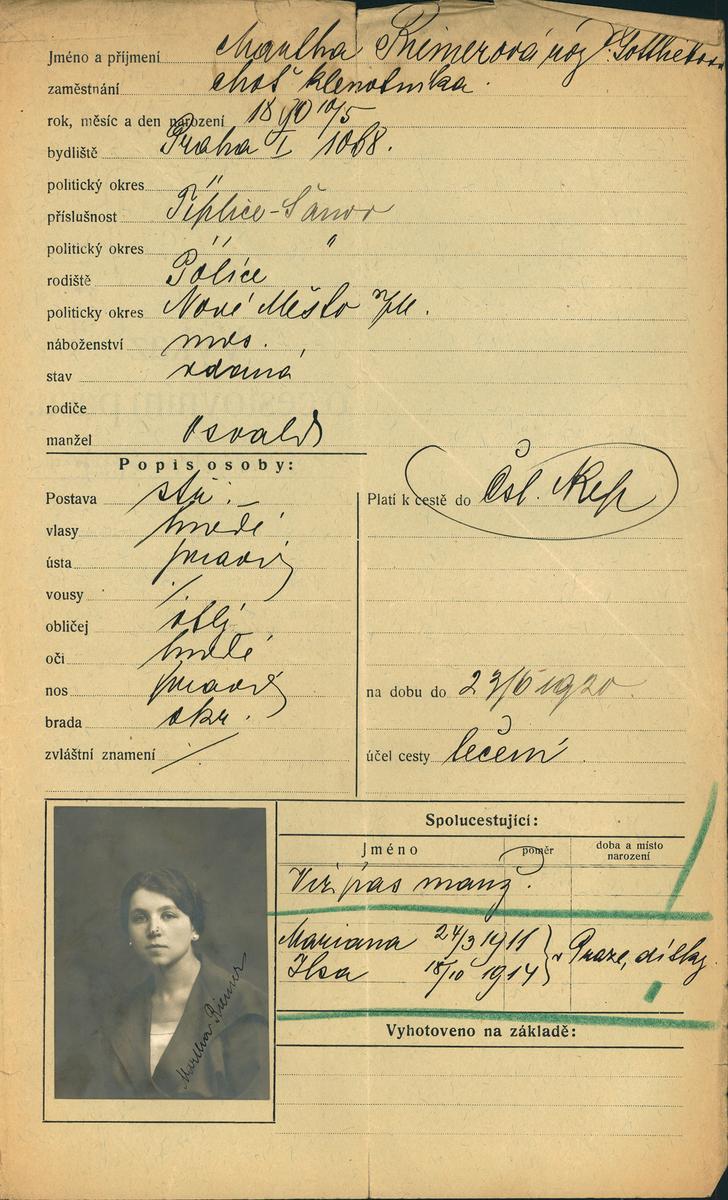 Jméno a příjmení Martha Riemerová roz. Gottliebova
zaměstnání choť klenotníka.
rok, měsíc a den narození 18 90 10/5
bydliště Praha I 1068.
politický okres "
příslušnost Teplice-Šanov
politický okres " "
rodiště Police
politicky okres Nové Město n/M.
náboženství mos.
stav vdaná
rodiče
manžel Osvald
Popis osoby:
Postava stř.
vlasy hnědé
ústa pravid.
vousy /
obličej oblý
oči hnědé
nos pravid.
brada okr.
zvláštní znamení /
Platí k cestě do Čsl. Rep
na dobu do 23/6 1920.
účel cesty léčení.
Spolucestující:
Jméno poměr doba a místo narození
Viz pas manž.
Mariana 24/3 1911 } v Praze, dítky
Ilsa 18/10 1914
Vyhotoveno na základě:
Martha Riemer